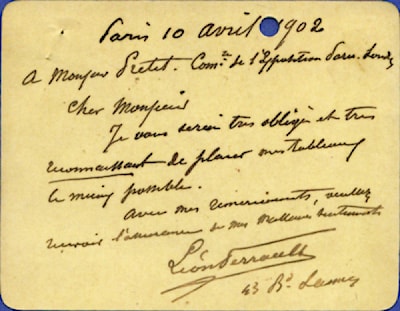 Paris 10 avril 1902
A Monsieur Pretet. Com.re de l'Exposition
Cher Monsieur
Je vous serai très obligé et très
reconnaissant de placer mes tableaux
le mieux possible.
Avec mes remerciements, veuillez
recevoir l'assurance de mes meilleurs sentiments
Léon Perrault
43 Bd